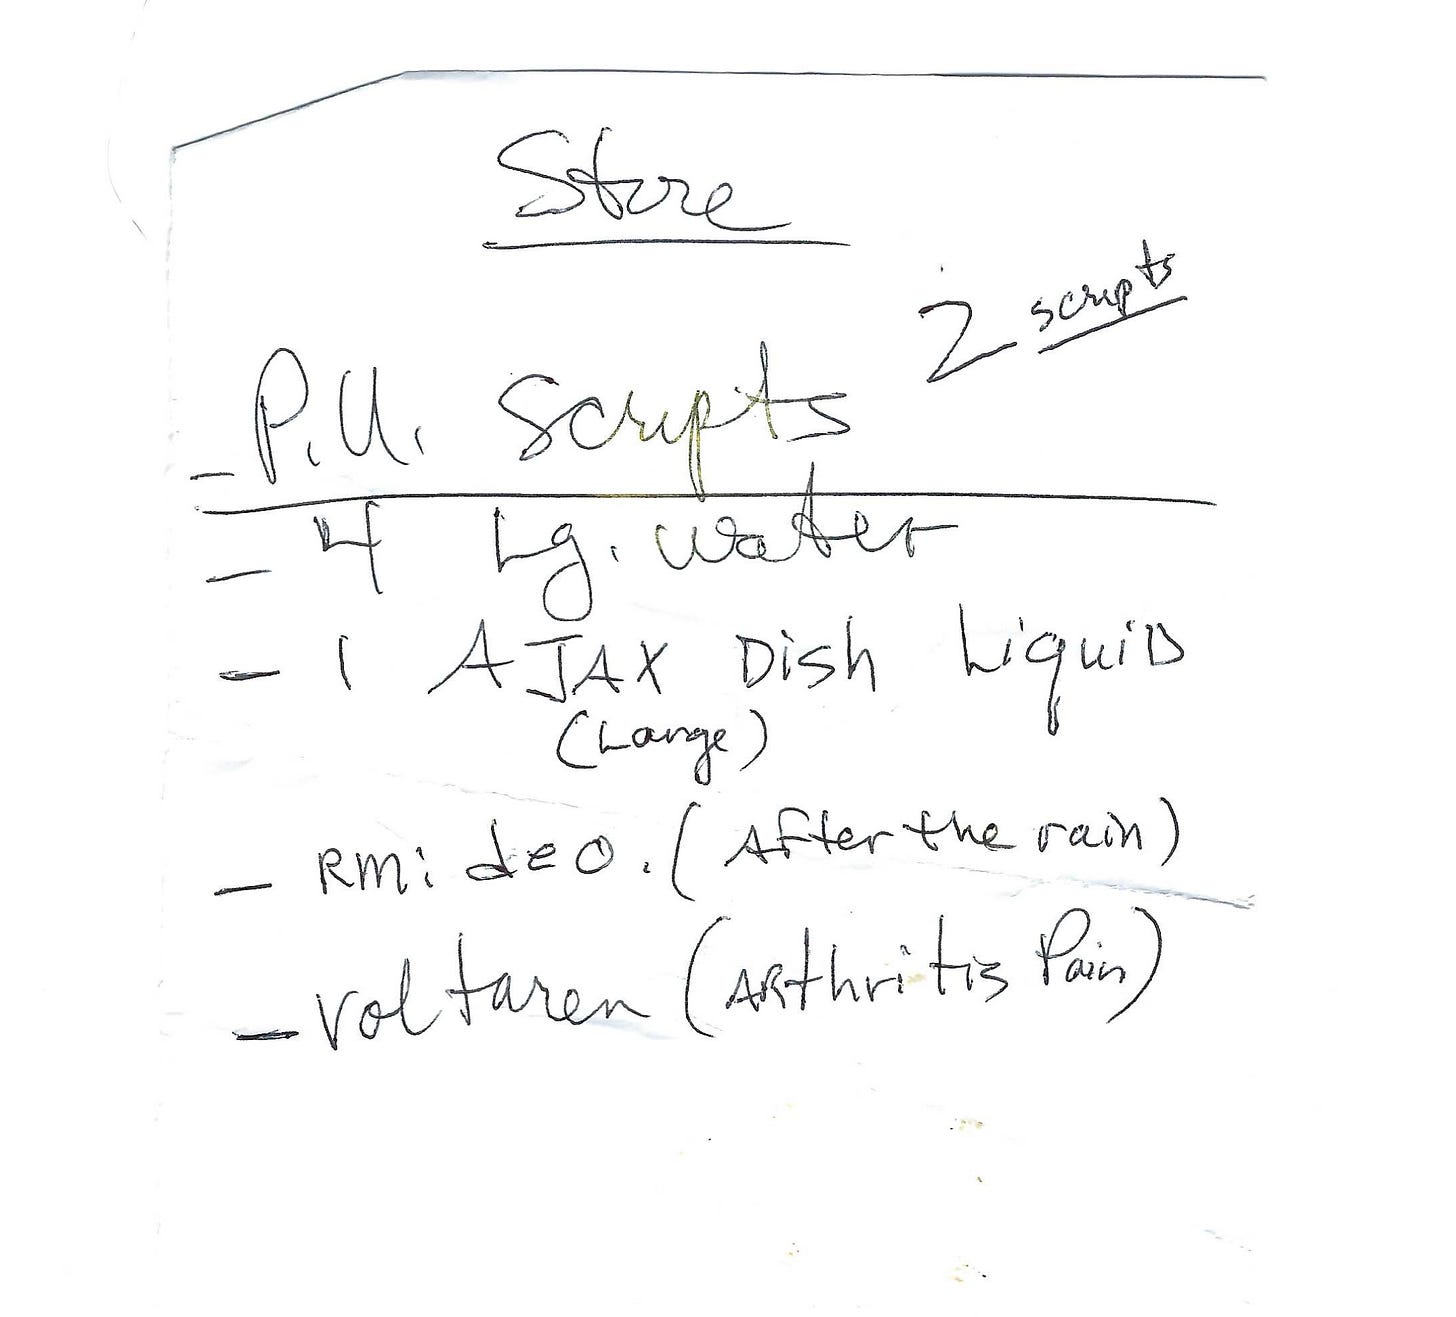 Store
2 scripts
- P.U. Scripts
- 4 Lg. water
- 1 AJAX Dish LiquiD
(Large)
- RM: deo. (After the rain)
- Voltaren (ARthritis Pain)